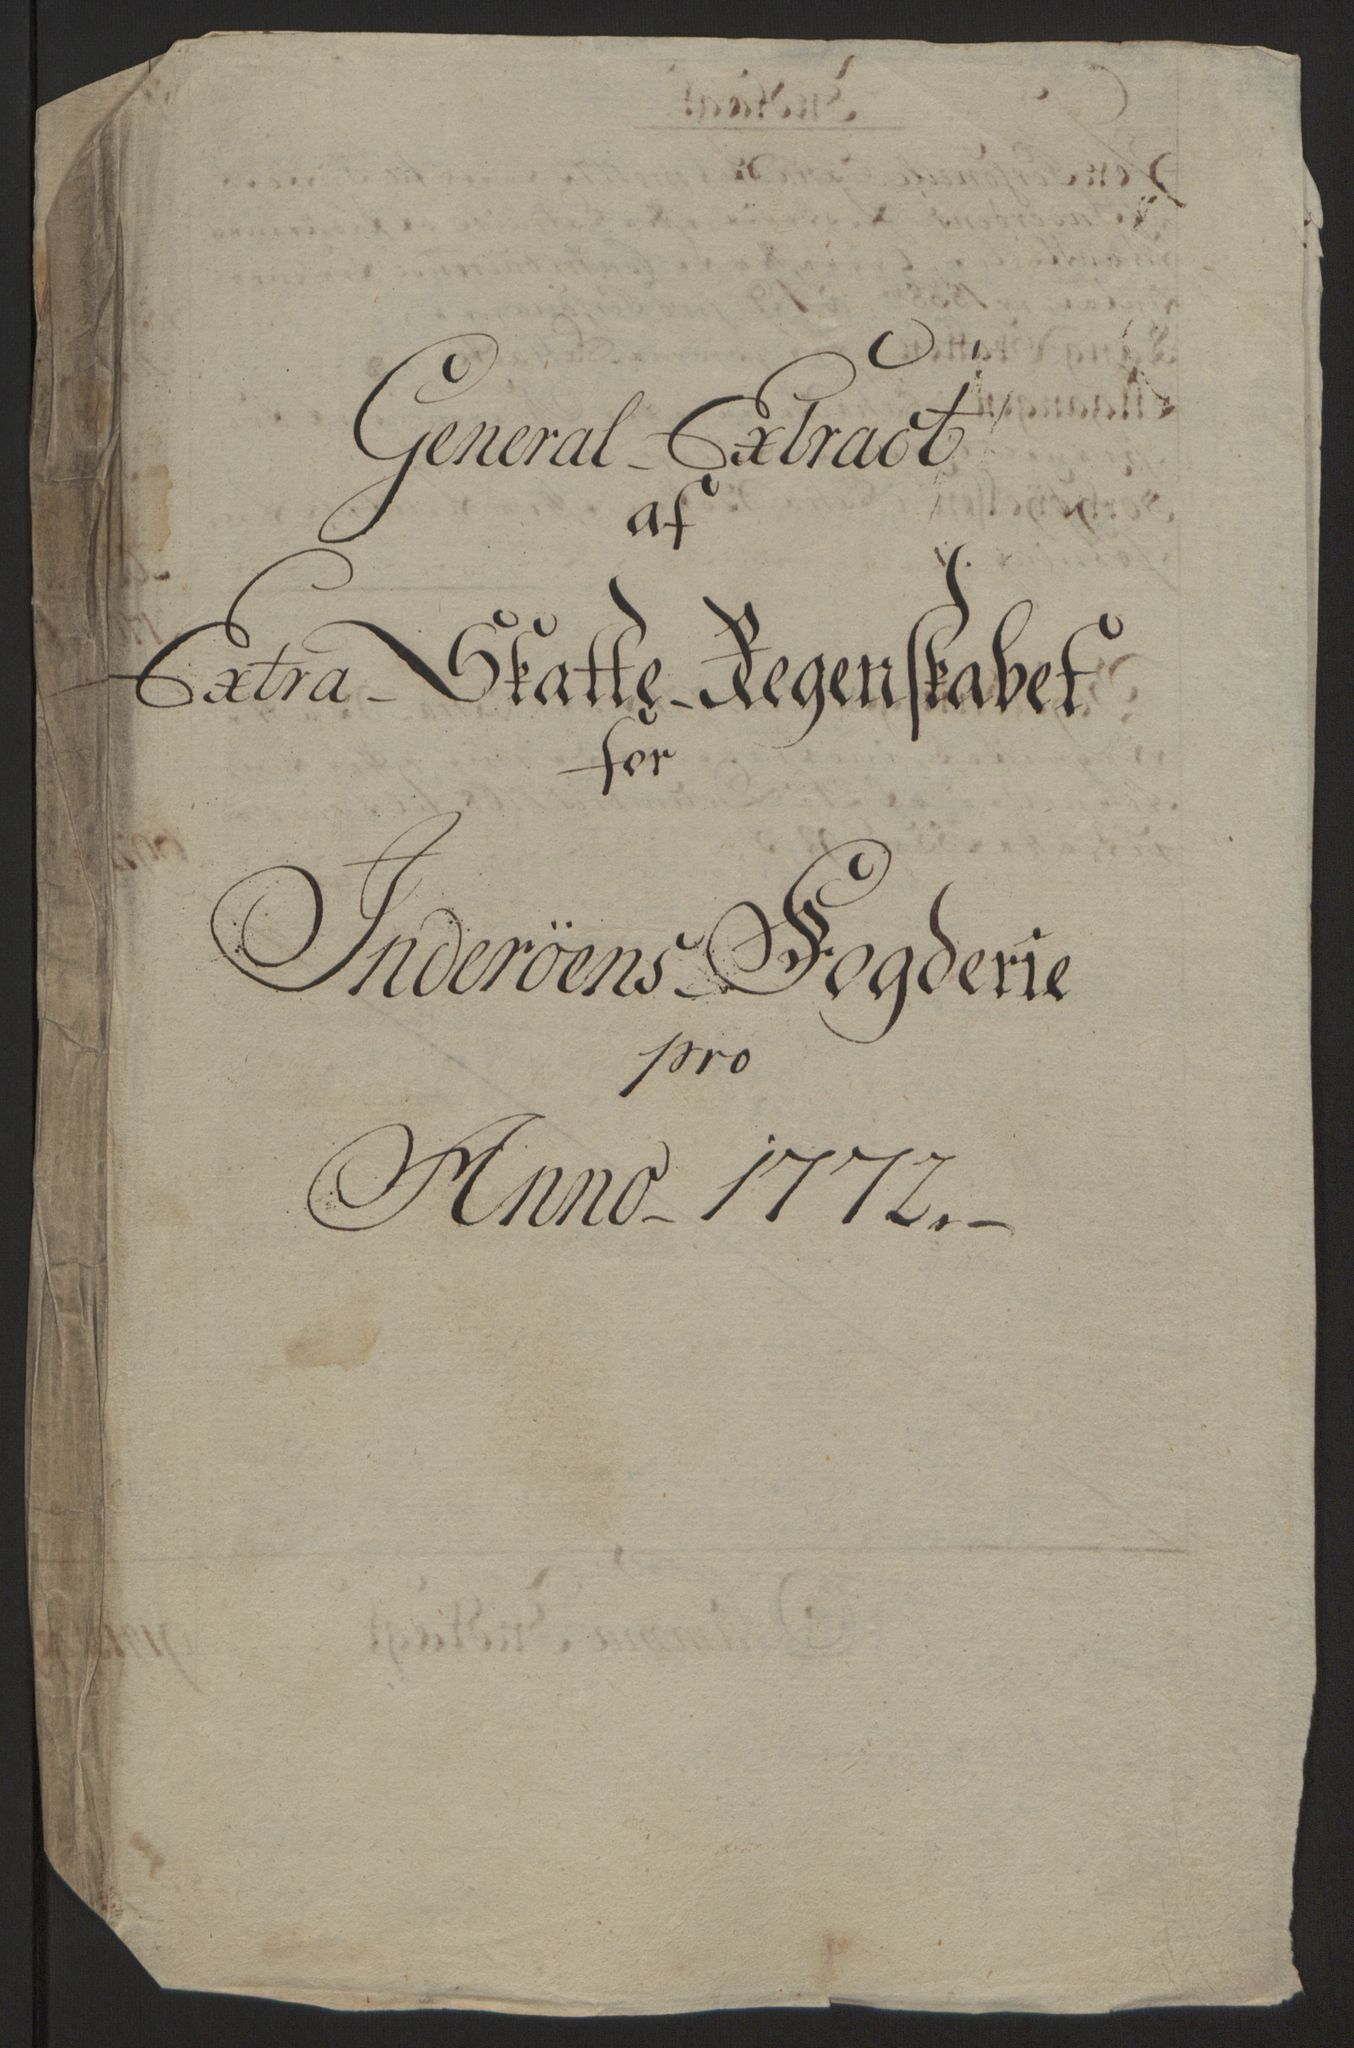 General-Extract
af
Extra-Skatte-Regenskabet
for
Inderöens-Fogderie
pro
Anno-1772.-